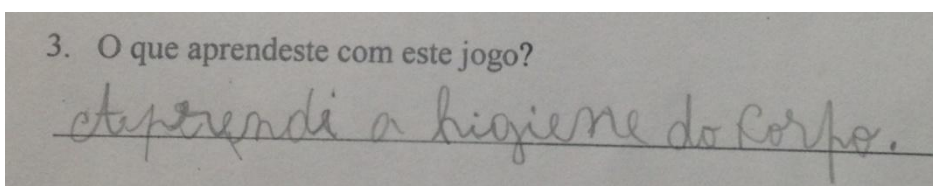 3. O que aprendeste com este jogo?
Aprendi a higiene do corpo.